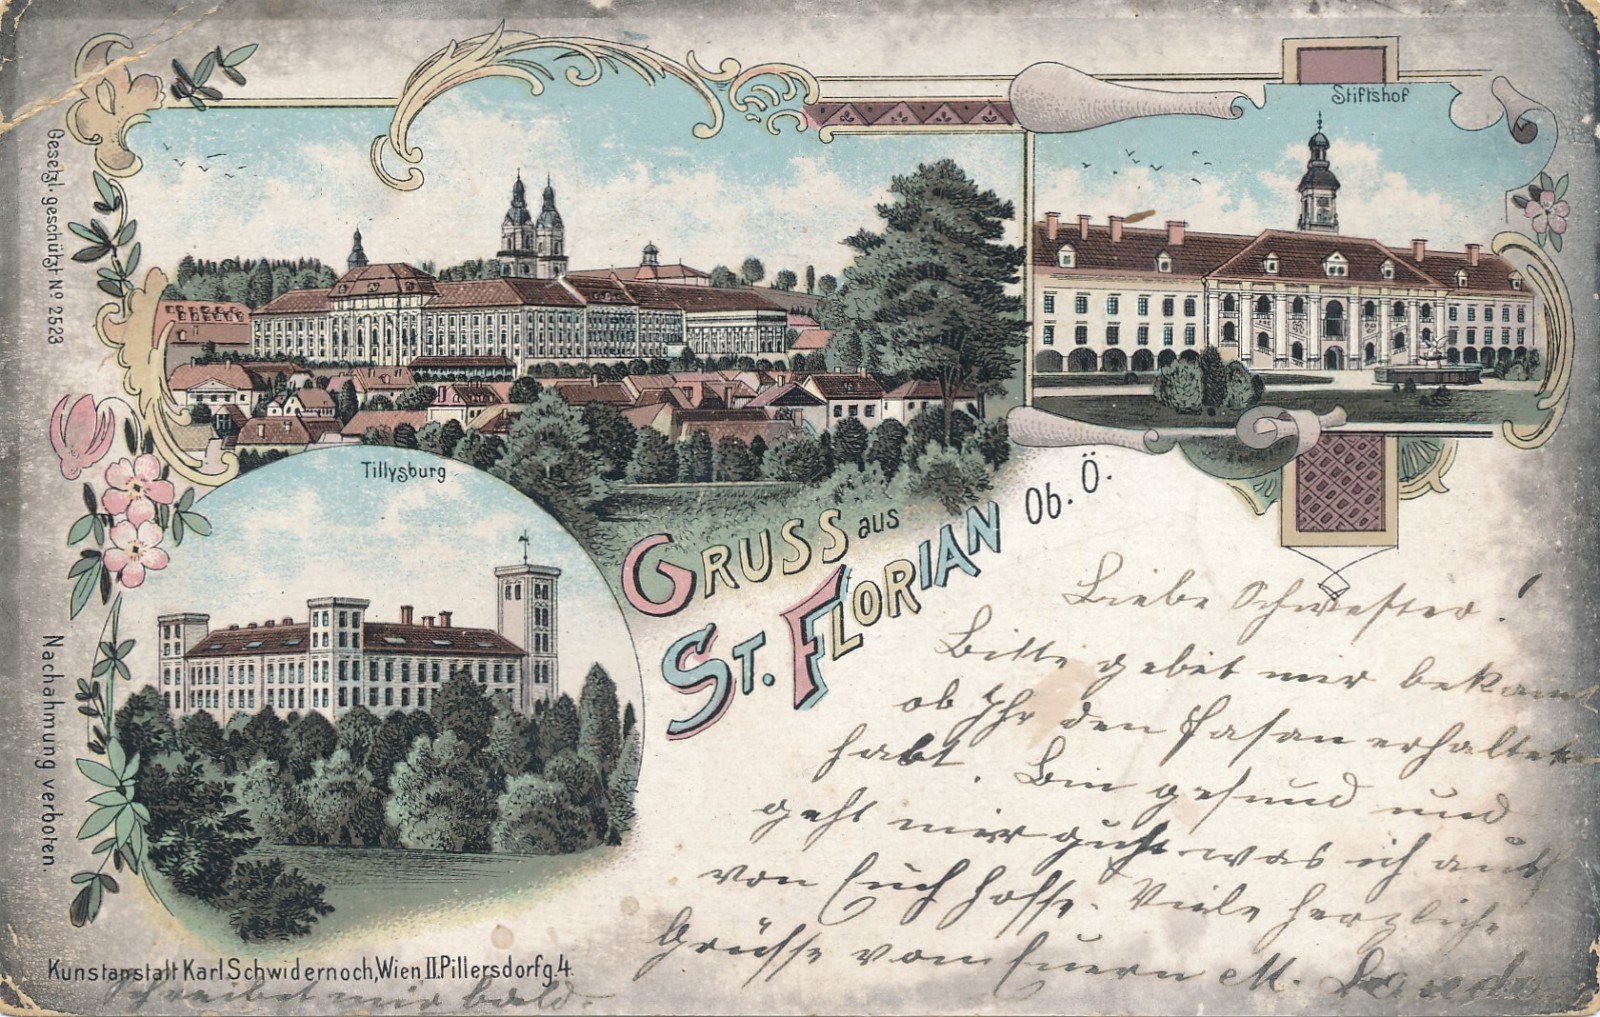 Stiftshof
Tillysburg
GRUSS aus
ST. FLORIAN Ob. Ö.
Gesetzl. geschützt Nº 2523
Nachahmung verboten.
Liebe Schwester!
Bitte gebet mir bekannt
ob Ihr den Fasan erhalten
habt. Bin gesund und
geht mir guht was ich auch
von Euch hoffe. Viele herzliche
Grüsse vom Euern M.
Kunstanstalt Karl Schwidernoch, Wien II. Pillersdorfg. 4.
Schreibet mir bald.